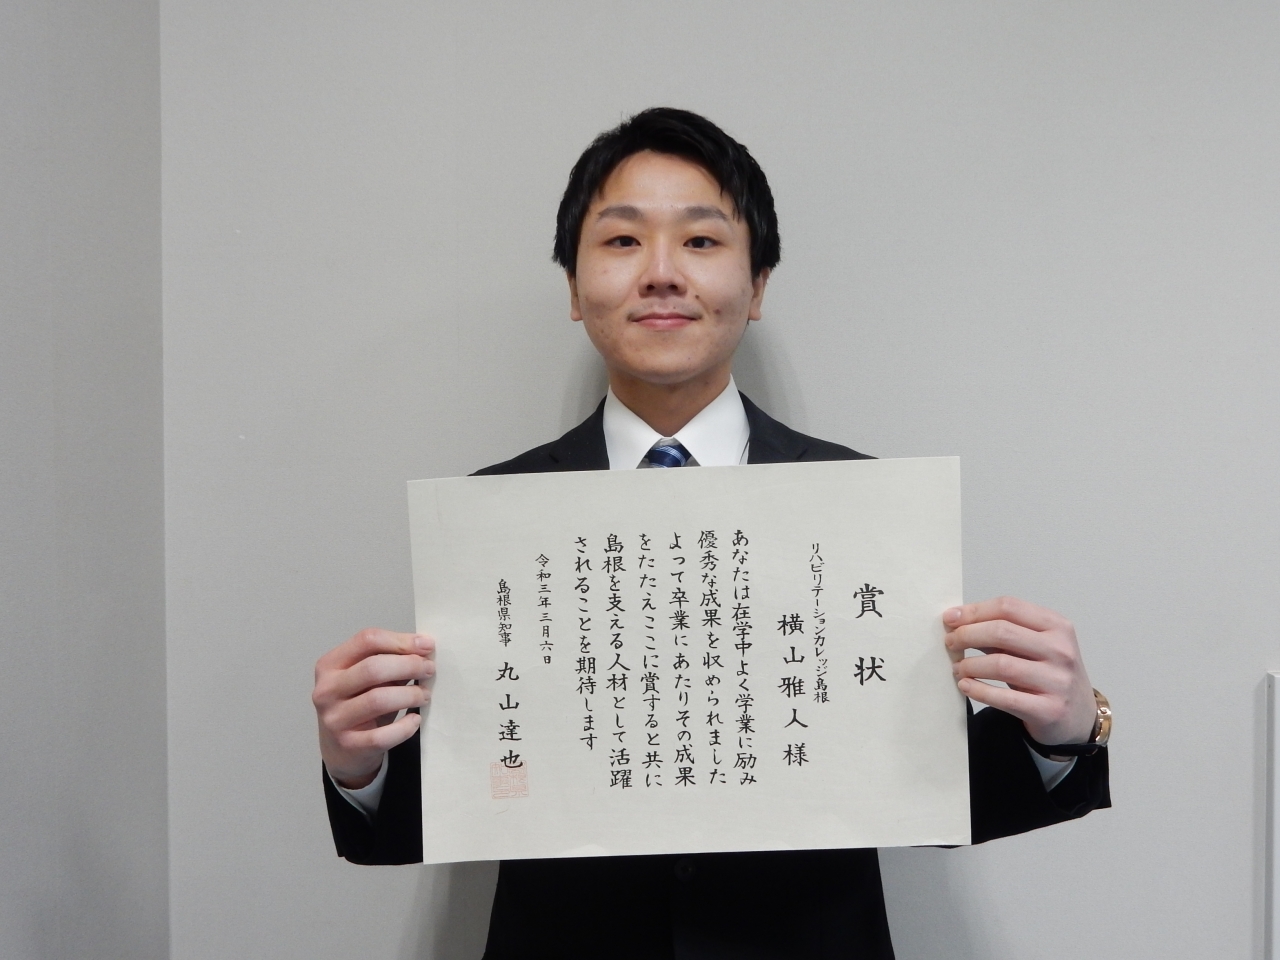 賞状
リハビリテーションカレッジ島根
横山雅人様
あなたは在学中よく学業に励み
優秀な成果を収められました
よって卒業にあたりその成果
をたたえここに賞すると共に
島根を支える人材として活躍
されることを期待します
令和三年三月六日
島根県知事 丸山達也